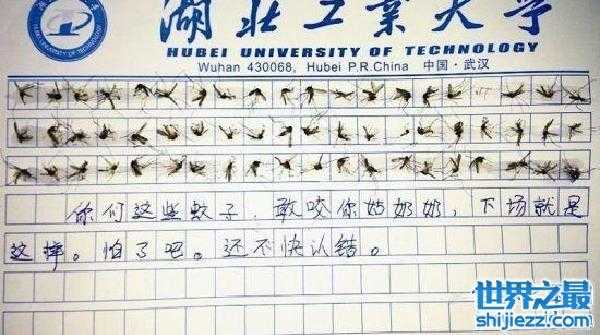 湖北工業大学
HUBEI UNIVERSITY OF TECHNOLOGY
Wuhan 430068, Hubei P.R.China 中国·武汉
你们这些蚊子,敢咬你姑奶奶,下场就是
这样。怕了吧。还不快认错。
世界之最
shijiezz.com